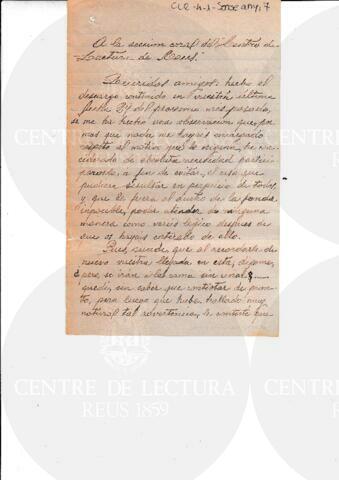 CLR-4.1-Sorde any, 7
A la seccion coral del "Centro de
Lectura de Reus."
Queridos amigos: hecho el
descargo contenido en vuestra última
fecha 27 del proximo mes pasado,
se me ha hecho una observacion que, por
mas que nada me hayais encargado
respeto al motivo que la origina, he con-
siderado de absoluta necesidad partici-
parosla, a fin de evitar, el caso que
pudiera resultar en perjuicio de todos,
y que le fuera al dueño de la fonda
imposible, poder atender de ninguna
manera como veréis lógico despues de
que os hayais enterado de ello.
Pues, sucede que al recordarle de
nuevo vuestra llegada en esta, díjome,
¿pero, se irán a la cama sin cenar?
quedé, sin saber que contestar de pron-
to, pero luego que hube hallado muy
natural tal advertencia, le contesté que
CENTRE DE LECTURA
REUS 1859